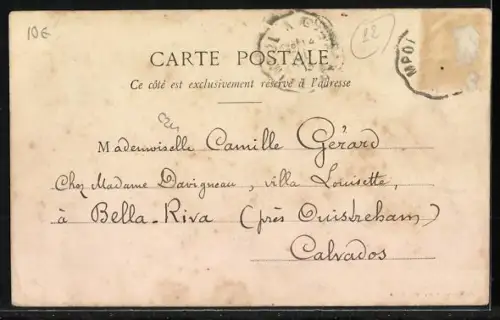 10€
22
MPOL
CARTE POSTALE
Ce côté est exclusivement réservé à l'adresse
Mademoiselle Camille Gérard
Chez Madame Davigneau, villa Louisette,
à Bella-Riva (près Ouistreham)
Calvados